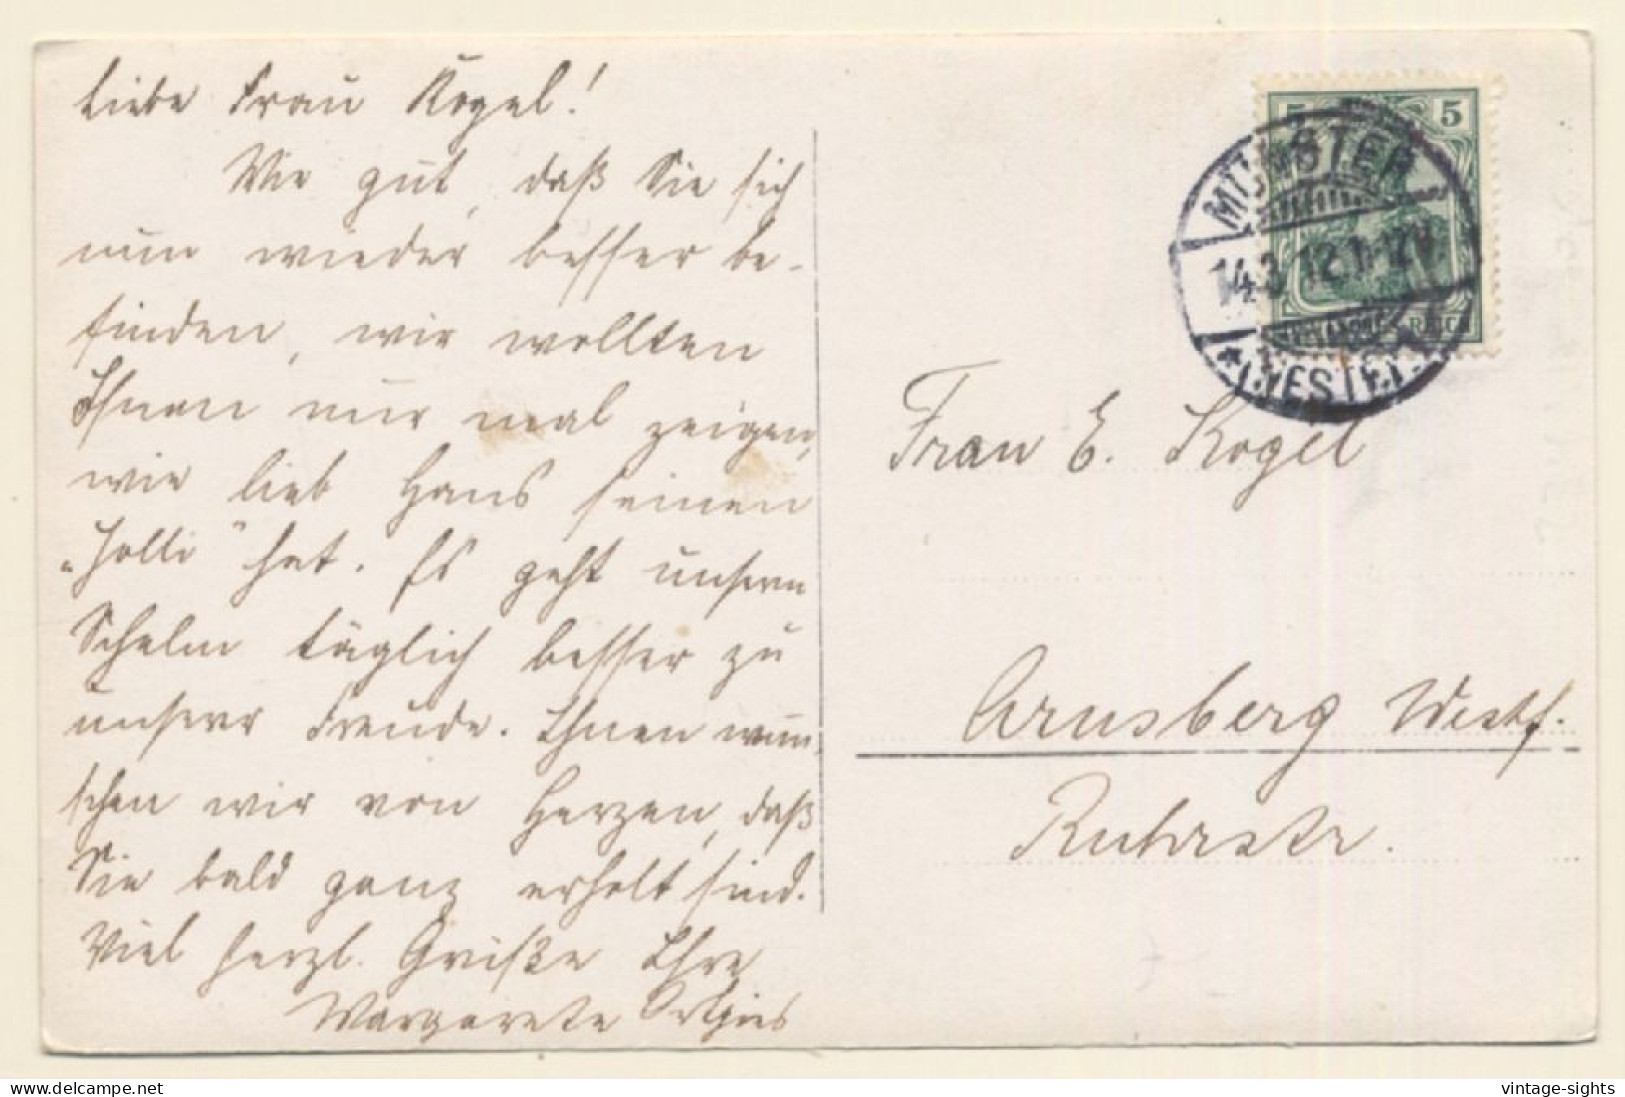 Liebe Frau Kogel!
Wie gut, daß Sie sich
nun wieder besser be-
finden, wir wollten
Ihnen nur mal zeigen,
wie lieb Hans seinen
„Holli“ hat. Es geht unserm
Schelm täglich besser zu
unserer Freude. Ihnen wün-
schen wir von Herzen, daß
Sie bald ganz erholt sind.
Viel herzl. Grüße Ihre
Margarete
5 5
MÜNSTER
14.3.12.11-12V.
*(WESTF.)
REICH
Frau E. Kogel
Arnsberg Westf.
Ruhrstr.
delcampe.net
vintage-sights